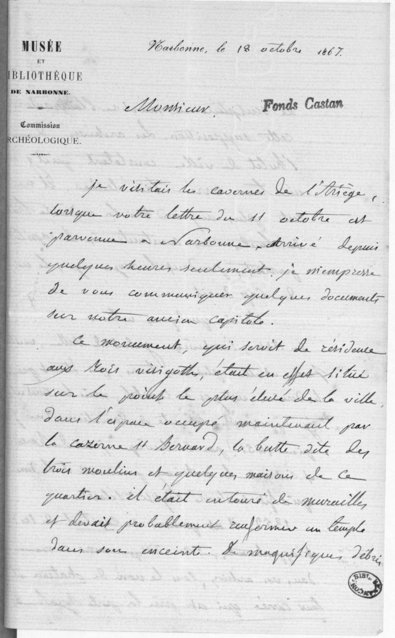 MUSÉE
ET
BIBLIOTHÈQUE
DE NARBONNE.
Commission
ARCHÉOLOGIQUE.
Narbonne, le 18 octobre 1867.
Monsieur,
Fonds Castan
je visitais les cavernes de l'Ariège,
lorsque votre lettre du 11 octobre est
parvenue à Narbonne. Arrivé depuis
quelques heures seulement, je m'empresse
de vous communiquer quelques documents
sur notre ancien capitole.
Ce monument, qui servit de résidence
aux Rois visigoths, était en effet situé
sur le point le plus élevé de la ville,
dans l'espace occupé maintenant par
la cazerne St Bernard, la butte dite des
trois moulins et quelques maisons de ce
quartier. il était entouré de murailles
et devait probablement renfermer un temple
dans son enceinte. De magnifiques débris